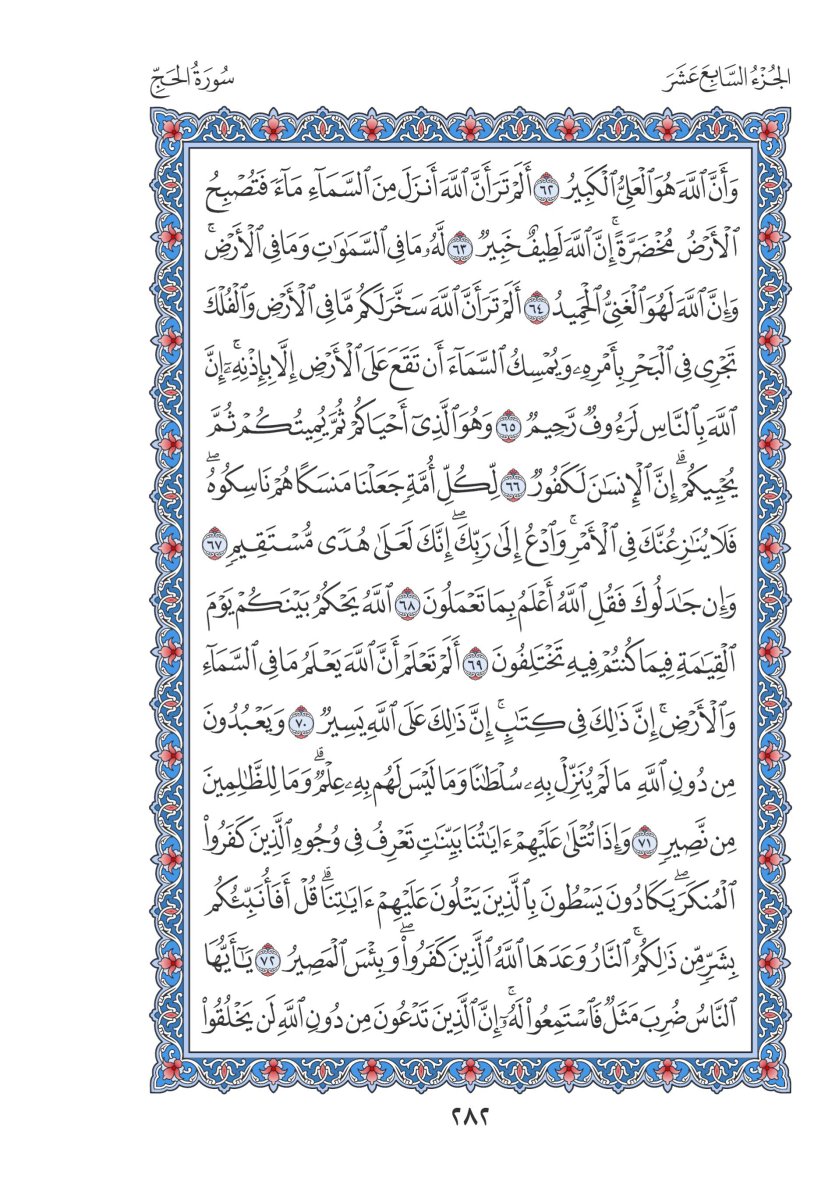 الجُزْءُ السَّابِعَ عَشَرَ
سُورَةُ الحَجِّ
وَأَنَّ ٱللَّهَ هُوَ ٱلْعَلِيُّ ٱلْكَبِيرُ ٦٢ أَلَمْ تَرَ أَنَّ ٱللَّهَ أَنزَلَ مِنَ ٱلسَّمَآءِ مَآءً فَتُصْبِحُ
ٱلْأَرْضُ مُخْضَرَّةًۚ إِنَّ ٱللَّهَ لَطِيفٌ خَبِيرٌ ٦٣ لَّهُۥ مَا فِى ٱلسَّمَٰوَٰتِ وَمَا فِى ٱلْأَرْضِۚ
وَإِنَّ ٱللَّهَ لَهُوَ ٱلْغَنِىُّ ٱلْحَمِيدُ ٦٤ أَلَمْ تَرَ أَنَّ ٱللَّهَ سَخَّرَ لَكُم مَّا فِى ٱلْأَرْضِ وَٱلْفُلْكَ
تَجْرِى فِى ٱلْبَحْرِ بِأَمْرِهِۦ وَيُمْسِكُ ٱلسَّمَآءَ أَن تَقَعَ عَلَى ٱلْأَرْضِ إِلَّا بِإِذْنِهِۦٓۚ إِنَّ
ٱللَّهَ بِٱلنَّاسِ لَرَءُوفٌ رَّحِيمٌ ٦٥ وَهُوَ ٱلَّذِىٓ أَحْيَاكُمْ ثُمَّ يُمِيتُكُمْ ثُمَّ
يُحْيِيكُمْۗ إِنَّ ٱلْإِنسَٰنَ لَكَفُورٌ ٦٦ لِّكُلِّ أُمَّةٍ جَعَلْنَا مَنسَكًا هُمْ نَاسِكُوهُۖ
فَلَا يُنَٰزِعُنَّكَ فِى ٱلْأَمْرِۚ وَٱدْعُ إِلَىٰ رَبِّكَۖ إِنَّكَ لَعَلَىٰ هُدًى مُّسْتَقِيمٍ ٦٧
وَإِن جَٰدَلُوكَ فَقُلِ ٱللَّهُ أَعْلَمُ بِمَا تَعْمَلُونَ ٦٨ ٱللَّهُ يَحْكُمُ بَيْنَكُمْ يَوْمَ
ٱلْقِيَٰمَةِ فِيمَا كُنتُمْ فِيهِ تَخْتَلِفُونَ ٦٩ أَلَمْ تَعْلَمْ أَنَّ ٱللَّهَ يَعْلَمُ مَا فِى ٱلسَّمَآءِ
وَٱلْأَرْضِۚ إِنَّ ذَٰلِكَ فِى كِتَٰبٍۚ إِنَّ ذَٰلِكَ عَلَى ٱللَّهِ يَسِيرٌ ٧٠ وَيَعْبُدُونَ
مِن دُونِ ٱللَّهِ مَا لَمْ يُنَزِّلْ بِهِۦ سُلْطَٰنًا وَمَا لَيْسَ لَهُم بِهِۦ عِلْمٌۗ وَمَا لِلظَّٰلِمِينَ
مِن نَّصِيرٍ ٧١ وَإِذَا تُتْلَىٰ عَلَيْهِمْ ءَايَٰتُنَا بَيِّنَٰتٍ تَعْرِفُ فِى وُجُوهِ ٱلَّذِينَ كَفَرُوا۟
ٱلْمُنكَرَۖ يَكَادُونَ يَسْطُونَ بِٱلَّذِينَ يَتْلُونَ عَلَيْهِمْ ءَايَٰتِنَاۗ قُلْ أَفَأُنَبِّئُكُم
بِشَرٍّ مِّن ذَٰلِكُمُۚ ٱلنَّارُ وَعَدَهَا ٱللَّهُ ٱلَّذِينَ كَفَرُوا۟ۖ وَبِئْسَ ٱلْمَصِيرُ ٧٢ يَٰٓأَيُّهَا
ٱلنَّاسُ ضُرِبَ مَثَلٌ فَٱسْتَمِعُوا۟ لَهُۥٓۚ إِنَّ ٱلَّذِينَ تَدْعُونَ مِن دُونِ ٱللَّهِ لَن يَخْلُقُوا۟
٢٨٢